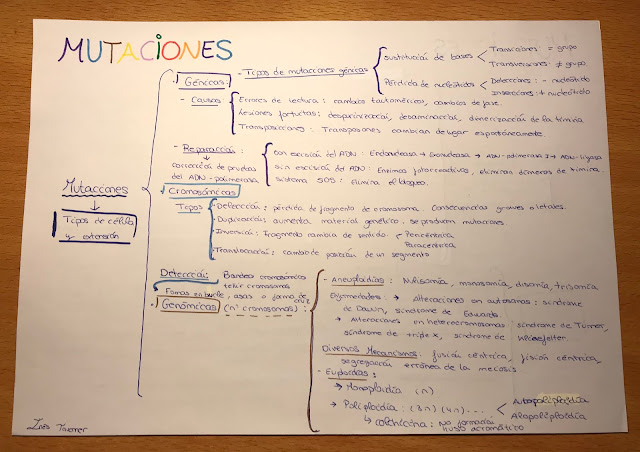 MUTACIONES
Mutaciones
Tipos de célula
y extensión
Génicas
- Tipos de mutaciones génicas
Sustitución de bases
Transiciones: = grupo
Transversiones: ≠ grupo
Pérdida de nucleótidos
Delecciones: - nucleótido
Inserciones: + nucleótido
- Causas
Errores de lectura: cambios tautoméricos, cambios de fase.
Lesiones fortuitas: despurinización, desaminación, dimerización de la timina
Transposiciones: Transposones cambian de lugar espontáneamente.
- Reparación
corrección de pruebas
del ADN-polimerasa
con escisión del ADN: Endonucleasa → Exonucleasa → ADN-polimerasa I → ADN-ligasa
sin escisión del ADN: Enzimas fotorreactivas, eliminan dímeros de timina.
sistema SOS: Elimina el bloqueo.
Cromosómicas
Tipos
- Delección: pérdida de fragmento de cromosoma. Consecuencias graves o letales.
- Duplicación: aumenta material genético, se producen mutaciones.
- Inversión: Fragmento cambia de sentido
Pericéntrica
Paracéntrica
- Translocación: cambio de posición de un segmento
Detección: Bandeo cromosómico
teñir cromosomas
Formas en bucle, asas o forma de cruz
- Genómicas (nº cromosomas):
- Aneuploidías: Nulisomía, monosomía, disomía, trisomía
Enfermedades: → Alteraciones en autosomas: síndrome
de Down, síndrome de Edwards.
→ Alteraciones en heterocromosomas: síndrome de Turner,
síndrome de triple X, síndrome de Klinefelter.
Diversos Mecanismos: fusión céntrica, fisión céntrica,
segregación errónea de la meiosis
- Euploidías:
→ Monoploidía (n)
→ Poliploidía: (3n) (4n)...
Autopoliploidía
Alopoliploidía
→ Colchicina: No formación
huso acromático
Inés Taverner